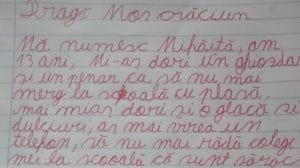 Dragă Mos crăciun
Mă numesc Mihăită, am
13 ani, Mi-as dori un ghiozda
si un penar ca să nu mai
merg la scoală cu plasă.
mai mias dori si o glacă si
dulciuri, as mai vrea un
telefon, să nu mai rădă colegi
mi la scoală că sunt sărac